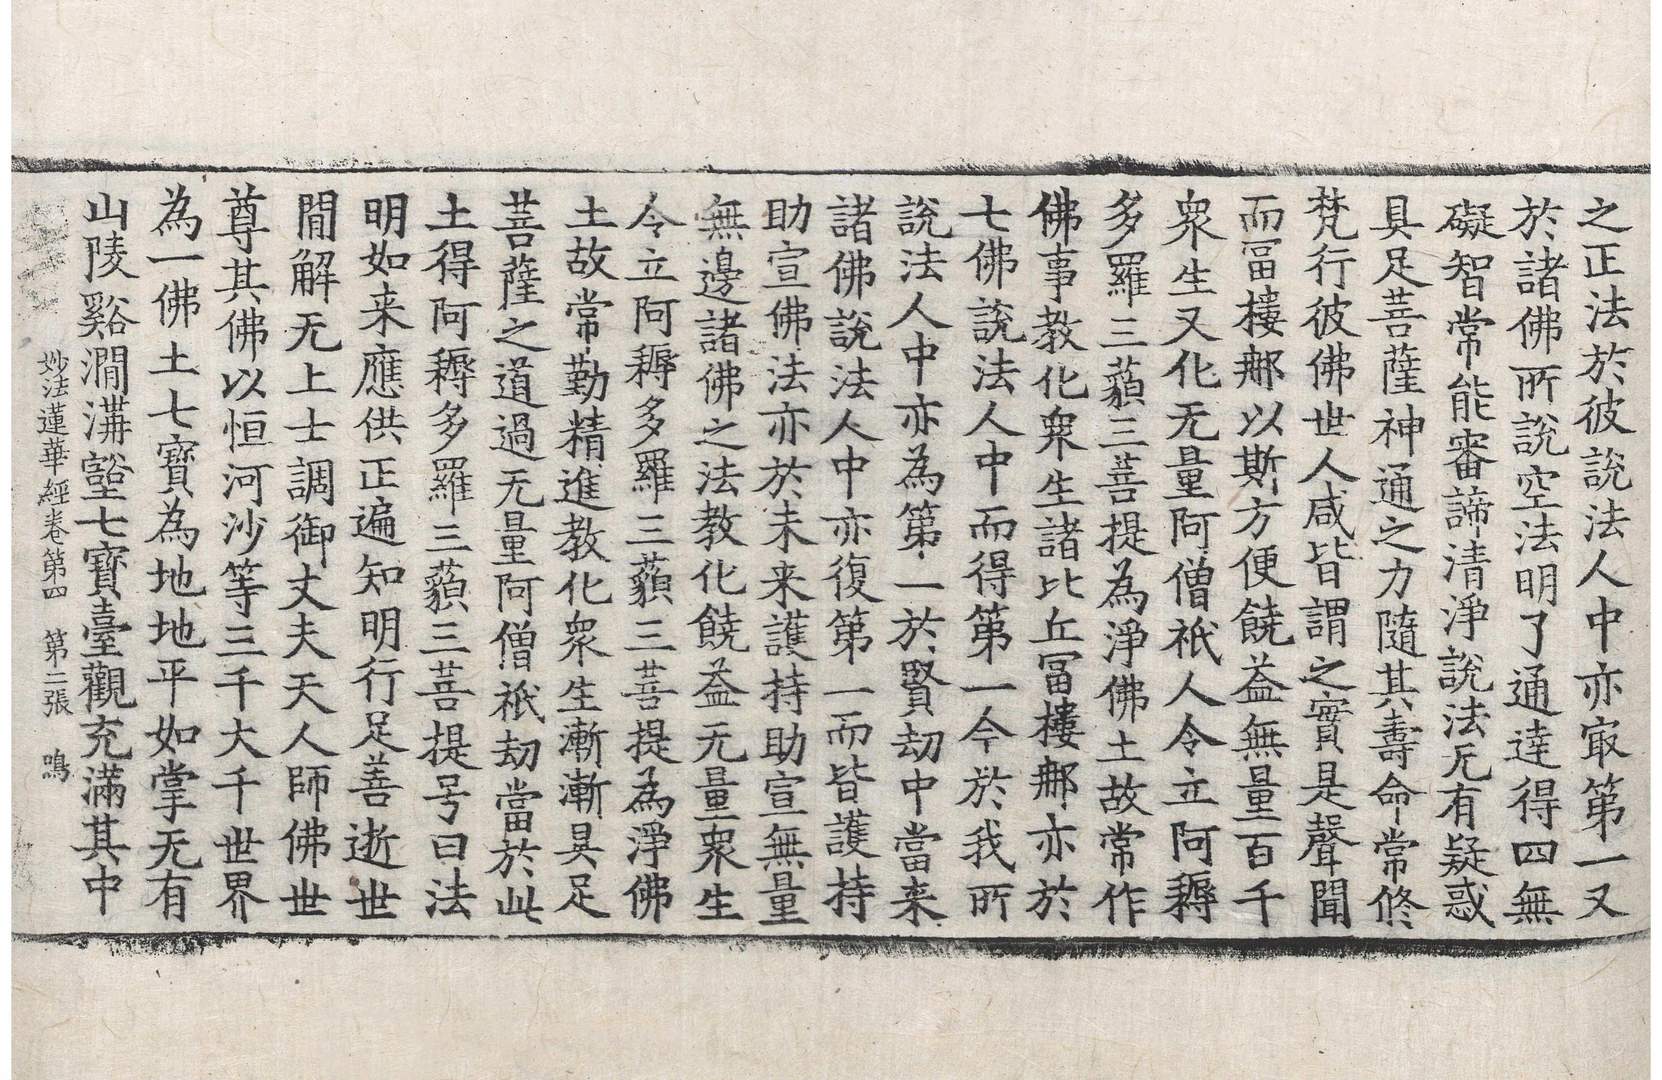 之正法於彼說法人中亦㝡第一又
於諸佛所說空法明了通達得四無
礙智常能審諦清淨說法无有疑惑
具足菩薩神通之力隨其壽命常修
梵行彼佛世人咸皆謂之實是聲聞
而冨樓䣯以斯方便饒益無量百千
衆生又化无量阿僧祇人令立阿耨
多羅三藐三菩提為淨佛土故常作
佛事教化衆生諸比丘冨樓䣯亦於
七佛說法人中而得第一今於我所
說法人中亦為第一於賢劫中當来
諸佛說法人中亦復第一而皆護持
助宣佛法亦於未来護持助宣無量
無邊諸佛之法教化饒益无量衆生
令立阿耨多羅三藐三菩提為淨佛
土故常勤精進教化衆生漸漸具足
菩薩之道過无量阿僧祇劫當於此
土得阿耨多羅三藐三菩提号曰法
明如来應供正遍知明行足善逝世
間解无上士調御丈夫天人師佛世
尊其佛以恒河沙等三千大千世界
為一佛土七寶為地地平如掌无有
山陵谿澗溝壑七寶臺觀充滿其中
妙法蓮華經卷第四 第二張 鳴